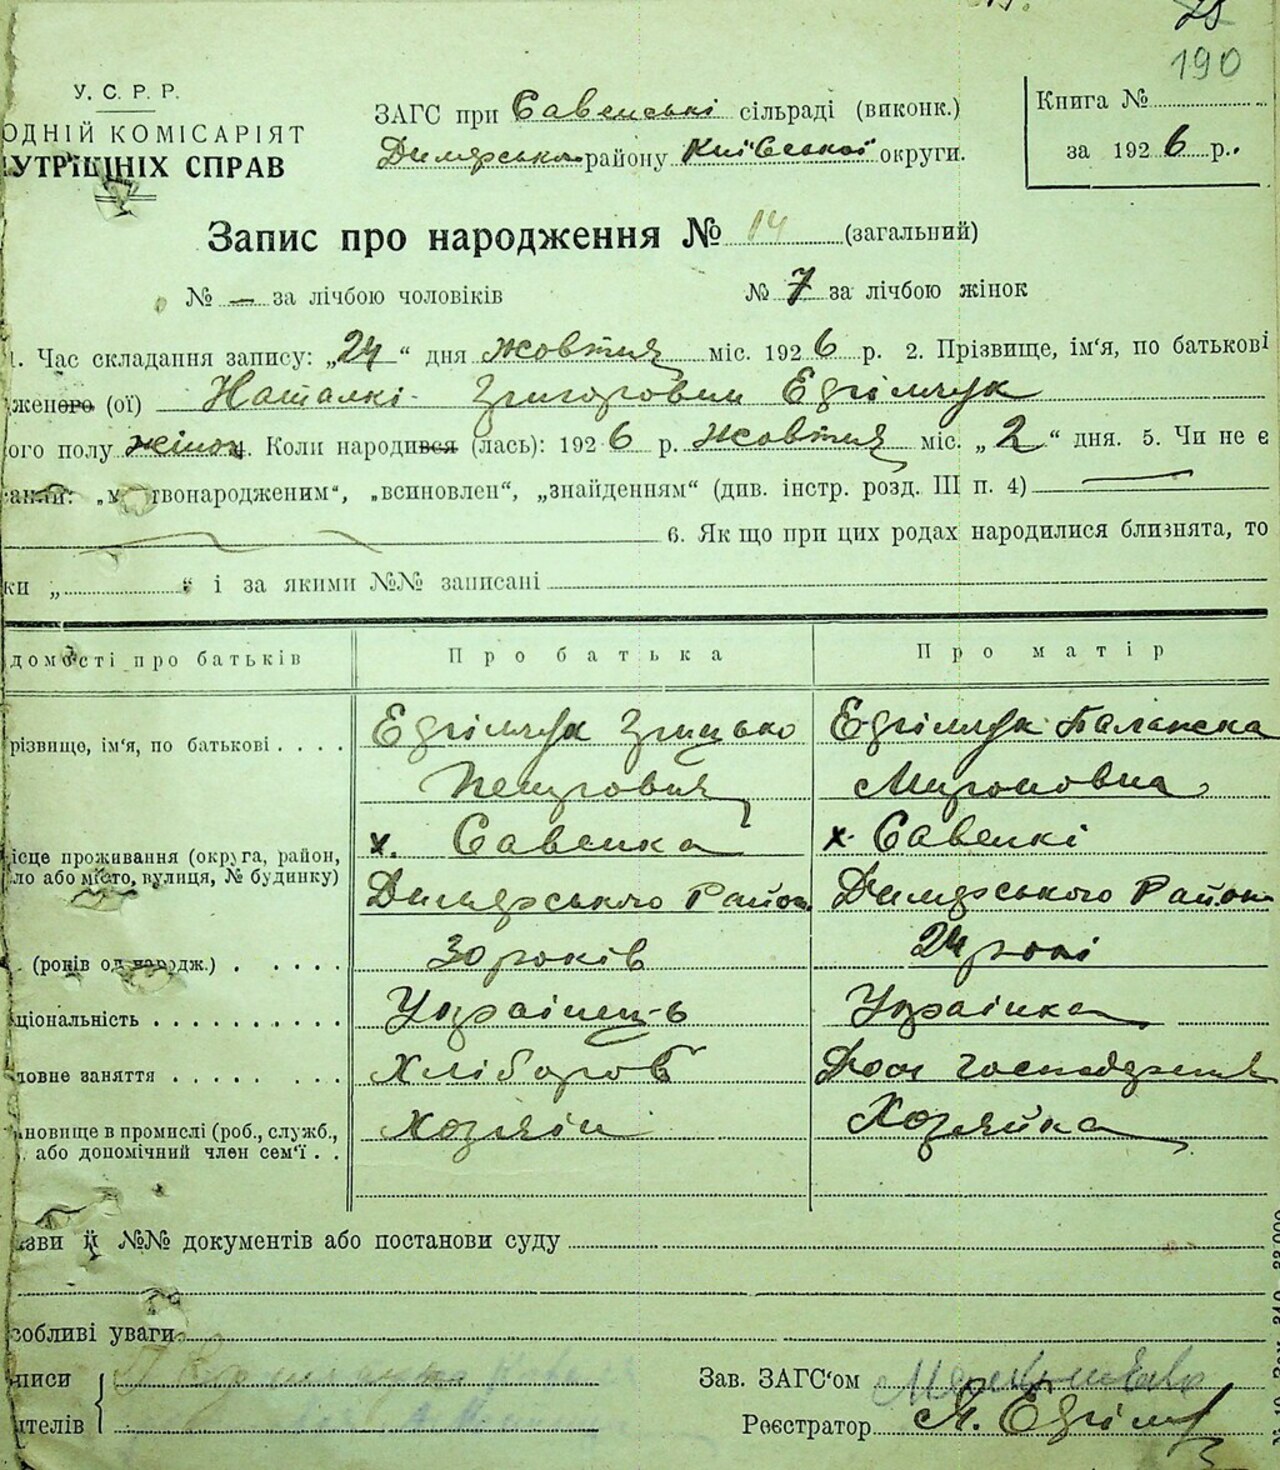 190
У. С. Р. Р.
ОДНІЙ КОМІСАРІЯТ
УТРІШНІХ СПРАВ
ЗАГС при Савенські сільраді (виконк.)
Димерськ. району Київської округи.
Книга №
за 1926 р.
Запис про народження № 14 (загальний)
№ — за лічбою чоловіків № 7 за лічбою жінок
1. Час складання запису: „24“ дня жовтня міс. 1926 р. 2. Прізвище, ім‘я, по батькові
женого (ої) Наталкі Григоровни Едгімчук
ого полу жіноч. Коли народився (лась): 1926 р. жовтня міс. „2“ дня. 5. Чи не є
„мертвонародженим“, „всиновлен“, „знайденням“ (див. інстр. розд. III п. 4)
6. Як що при цих родах народилися близнята, то
ки „ “ і за якими №№ записані
домості про батьків Про батька Про матір
різвище, ім‘я, по батькові Едгімчук Грицько Едгімчук
Петрович Мироновна
х. Савенка х. Савенкі
ісце проживання (округа, район,
ло або місто, вулиця, № будинку)
Димерського Район Димерського Району
(років од народж.) 30 років 24 рокі
ціональність Украінець Украінка
ловне заняття Хлібороб Дом господарств
ановище в промислі (роб., служб., Хозяін Хозяйка
або допомічний член сем‘ї
зви й №№ документів або постанови суду
собливі уваги
писи Зав. ЗАГС‘ом
ителів Реєстратор